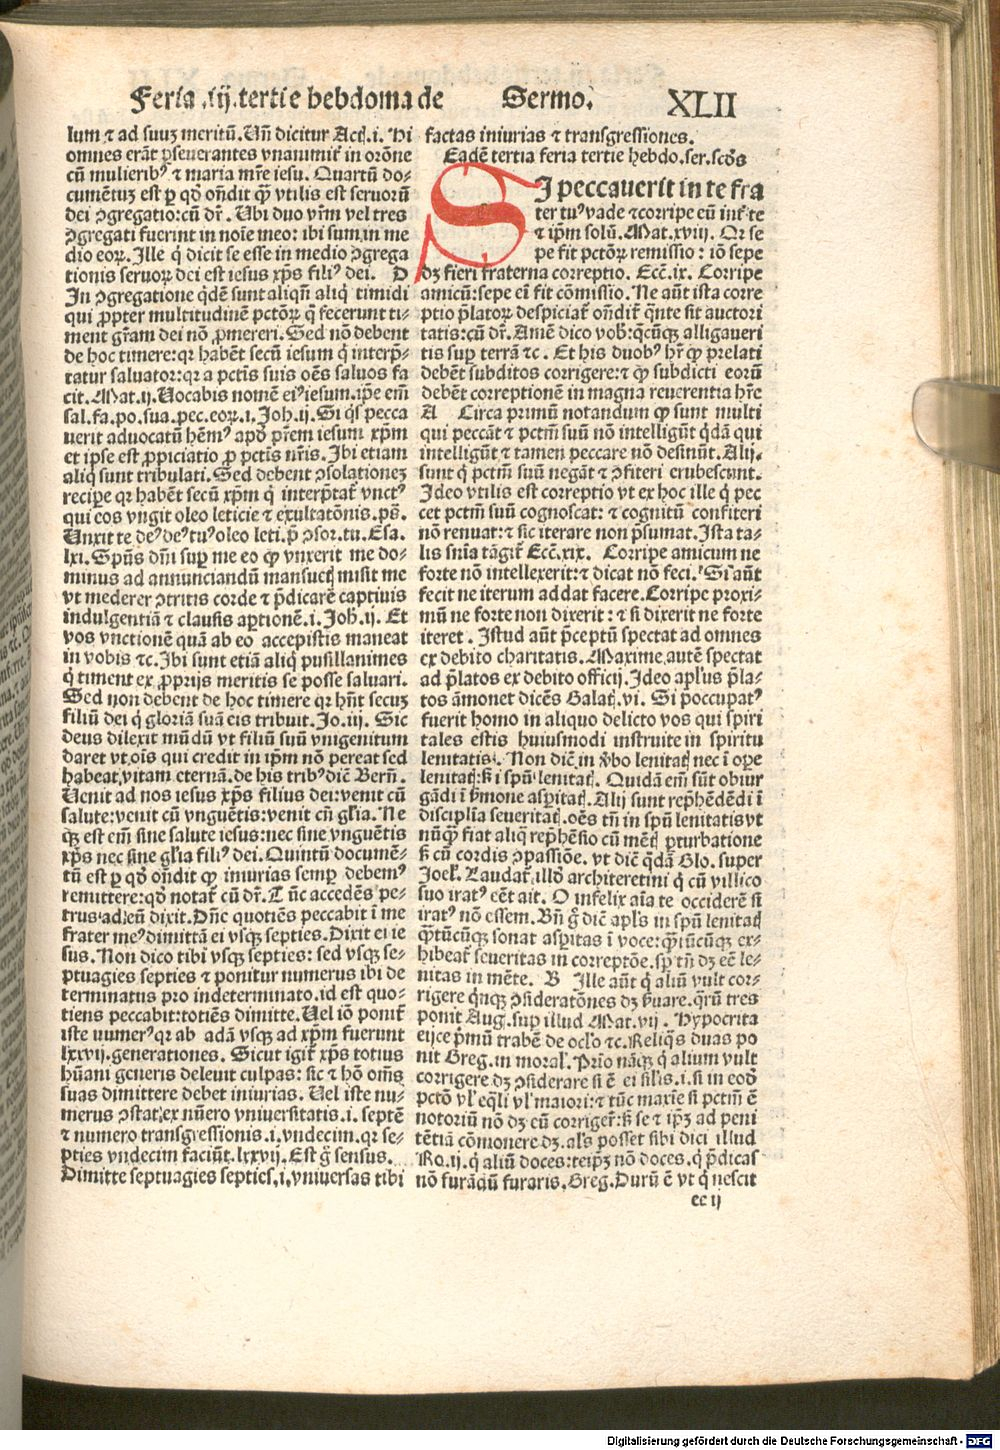 Feria .iij. tertie hebdomade Sermo. XLII
lum ⁊ ad suuȝ meritū. Vn̄ dicitur Act. i. Hi
omnes erāt ꝑseuerantes vnanimiť in orōne
cū mulieribꝰ ⁊ maria mr̄e iesu. Quartū do⸗
cumētuȝ est ꝑ qd̓ on̄dit ꝙ vtilis est seruorū
dei ꝯgregatio: cū dr̄. Vbi duo vr̄m vel tres
ꝯgregati fuerint in noīe meo: ibi sum in me
dio eoꝝ. Ille q̇ dicit se esse in medio ꝯgrega
tionis seruoꝝ dei est iesus xp̄s filiꝰ dei. D
In ꝯgregatione q̇dē sunt aliqn̄ aliq̇ timidi
qui ꝓpter multitudinē pctōꝝ q̄ fecerunt ti⸗
ment gr̄am dei nō ꝓmereri. Sed nō debent
de hoc timere: qr habēt secū iesum q̇ interp̄⸗
tatur saluator: qr a pctīs suis oēs saluos fa
cit. Mat. ij. Vocabis nomē eiꝰ iesum. ip̄e em̄
sal. fa. po. sua. pec. eoꝝ. i. Joh. ij. Si q̇s pecca
uerit aduocatū hēmꝰ apd̓ pr̄em iesum xp̄m
et ipse est ꝓpiciatio ꝓ pctīs nr̄is. Ibi etiam
aliq̇ sunt tribulati. Sed debent ꝯsolationeȝ
recipe qr habēt secū xp̄m q̇ interp̄tať vnctꝰ
qui eos vngit oleo leticie ⁊ exultatōnis. ps̄.
Vnxit te deꝰ deꝰ tuꝰ oleo leti. p̄ ꝯsor. tu. Esa.
lxi. Spūs dn̄i suꝑ me eo ꝙ vnxerit me do⸗
minus ad annunciandū mansuetꝭ misit me
vt mederer ꝯtritis corde ⁊ p̄dicarē captiuis
indulgentiā ⁊ clausis aptionē. i. Joh. ij. Et
vos vnctionē quā ab eo accepistis maneat
in vobis ⁊c. Ibi sunt etiā aliq̇ pusillanimes
q̇ timent ex ꝓprijs meritis se posse saluari.
Sed non debent de hoc timere qr hn̄t secuȝ
filiū dei q̇ gloriā suā eis tribuit. Jo. iij. Sic
deus dilexit mūdū vt filiū suū vnigenitum
daret vt oīs qui credit in ip̄m nō pereat sed
habeat vitam eternā. de his tribꝰ dic̄ Bern̄.
Venit ad nos iesus xp̄s filius dei: venit cū
salute: venit cū vnguētis: venit cū gl̄ia. Ne
qꝫ est em̄ sine salute iesus: nec sine vnguētis
xp̄s nec sine gl̄ia filiꝰ dei. Quintū documē⸗
tū est ꝑ qd̓ on̄dit ꝙ iniurias semꝑ debemꝰ
remittere: qd̓ notať cū dr̄. Tūc accedēs pe⸗
trus ad eū dixit. Dn̄e quotiēs peccabit ī me
frater meꝰ dimittā ei vsqꝫ septies. Dixit ei ie
sus. Non dico tibi vsqꝫ septies: sed vsqꝫ se⸗
ptuagies septies ⁊ ponitur numerus ibi de
terminatus pro indeterminato. id est quo⸗
tiens peccabit: totiēs dimitte. Uel iō poniť
iste numerꝰ qr ab adā vsqꝫ ad xp̄m fuerunt
lxxvij. generationes. Sicut igiť xp̄s totius
hūani generis deleuit culpas: sic ⁊ hō om̄s
suas dimittere debet iniurias. Uel iste nu⸗
merus ꝯstat ex nūero vniuersitatis. i. septē
⁊ numero transgressionis. i. vndecim. qr se⸗
pties vndecim faciūt. lxxvij. Est g̊ sensus.
Dimitte septuagies septies, i, vniuersas tibi
factas iniurias ⁊ transgressiones.
Eadē tertia feria tertie hebdo. ser. scd̓s
SI peccauerit in te fra
ter tuꝰ vade ⁊ corripe eū inť te
⁊ ip̄m solū. Mat. xviij. Qr se
pe fit pctōꝝ remissio: iō sepe
dȝ fieri fraterna correptio. Ecc̄. ix. Corripe
amicū: sepe ei fit cōmissio. Ne aūt ista corre
ptio p̄latoꝝ despiciať on̄diť q̄nte sit auctori
tatis: cū dr̄. Amē dico vob̄: q̄cūqꝫ alligaueri
tis suꝑ terrā ⁊c. Et his duobꝰ hr̄ ꝙ prelati
debēt subditos corrigere: ⁊ ꝙ subdicti eorū
debēt correptionē in magna reuerentia hr̄e
A Circa primū notandum ꝙ sunt multi
qui peccāt ⁊ pctm̄ suū nō intelligūt q̇dā qui
intelligūt ⁊ tamen peccare nō desinūt. Alij
sunt q̇ pctm̄ suū negāt ⁊ ꝯfiteri erubescunt.
Ideo vtilis est correptio vt ex hoc ille q̇ pec
cet pctm̄ suū cognoscat: ⁊ cognitū confiteri
nō renuat: ⁊ sic iterare non p̄sumat. Ista ta⸗
lis sn̄ia tāgiť Ecc̄. xix. Corripe amicum ne
forte nō intellexerit: ⁊ dicat nō feci. Si aūt
fecit ne iterum addat facere. Corripe proxi⸗
mū ne forte non dixerit: ⁊ si dixerit ne forte
iteret. Istud aūt p̄ceptū spectat ad omnes
ex debito charitatis. Maxime autē spectat
ad p̄latos ex debito officij. Ideo apl̄us p̄la⸗
tos āmonet dicēs Galat. vi. Si p̄occupatꝰ
fuerit homo in aliquo delicto vos qui spiri
tales estis huiusmodi instruite in spiritu
lenitatis. Non dic̄ in v̓bo lenitatꝭ nec ī oꝑe
lenitatꝭ: sꝫ ī spū lenitatꝭ. Quidā em̄ sūt obiur
gādi ī ẜmone asꝑitatꝭ. Alij sunt rep̄hēdēdi ī
disciplīa seueritatꝭ. oēs tn̄ in spū lenitatis vt
nūqꝫ fiat aliq̇ rep̄hēsio cū mētꝭ ꝑturbatione
sꝫ cū cordis ꝯpassiōe. vt dic̄ q̄dā Glo. super
Joel. Laudať illd̓ architeretini q̇ cū villico
suo iratꝰ eēt ait. O infelix aīa te occiderē si
iratꝰ nō essem. Bn̄ g̊ dic̄ apl̄s in spū lenitatꝭ
ꝙ̄tūcūqꝫ sonat asꝑitas ī voce: ꝙ̄tūcūqꝫ ex⸗
hibeať seueritas in correptōe. sp̄ tn̄ dȝ eē le⸗
nitas in mēte. B Ille aūt q̇ aliū vult cor⸗
rigere q̇nqꝫ ꝯsideratōnes dȝ ẜuare. q̄rū tres
ponit Aug. suꝑ illud Mat. vij. Hypocrita
eijce p̄mū trabē de ocl̓o ⁊c. Reliq̄s duas po
nit Greg. in moral̓. Prīo nāqꝫ q̇ alium vult
corrigere dȝ ꝯsiderare si ē ei sil̓is. i. si in eod̓
pctō vl̓ eq̄li vl̓ maiori: ⁊ tūc maxīe si pctm̄ ē
notoriū nō dȝ eū corrigeř: sꝫ se ⁊ ip̄ȝ ad peni
tētiā cōmonere dȝ. al̓s posset sibi dici illud
Ro. ij. q̇ aliū doces: teip̄ȝ nō doces. q̇ p̄dicas
nō furādū furaris. Greg. Durū ē vt q̇ nescit
ee ij
Digitalisierung gefördert durch die Deutsche Forschungsgemeinschaft - DFG